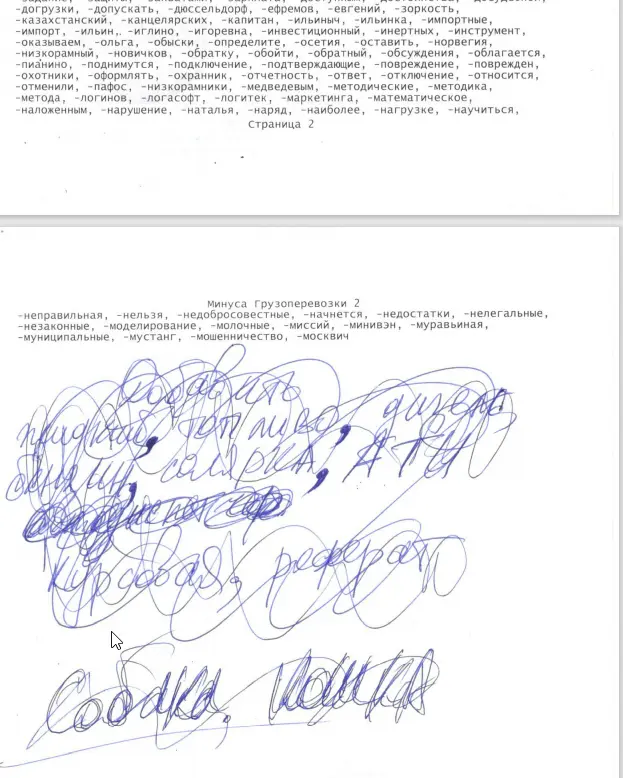 -догрузки, -допускать, -дюссельдорф, -ефремов, -евгений, -зоркость,
-казахстанский, -канцелярских, -капитан, -ильиныч, -ильинка, -импортные,
-импорт, -ильин, -иглино, -игоревна, -инвестиционный, -инертных, -инструмент,
-оказываем, -ольга, -обыски, -определите, -осетия, -оставить, -норвегия,
-низкорамный, -новичков, -обратку, -обойти, -обратный, -обсуждения, -облагается,
-пианино, -поднимутся, -подключение, -подтверждающие, -повреждение, -поврежден,
-охотники, -оформлять, -охранник, -отчетность, -ответ, -отключение, -относится,
-отменили, -пафос, -низкорамники, -медведевым, -методические, -методика,
-метода, -логинов, -логасофт, -логитек, -маркетинга, -математическое,
-наложенным, -нарушение, -наталья, -наряд, -наиболее, -нагрузке, -научиться,
Страница 2
Минуса Грузоперевозки 2
-неправильная, -нельзя, -недобросовестные, -начнется, -недостатки, -нелегальные,
-незаконные, -моделирование, -молочные, -миссий, -минивэн, -муравьиная,
-муниципальные, -мустанг, -мошенничество, -москвич
Добавить
топливо, дизель
бензин, солярка, АТИ
курсовая, реферат
Собака, кошка